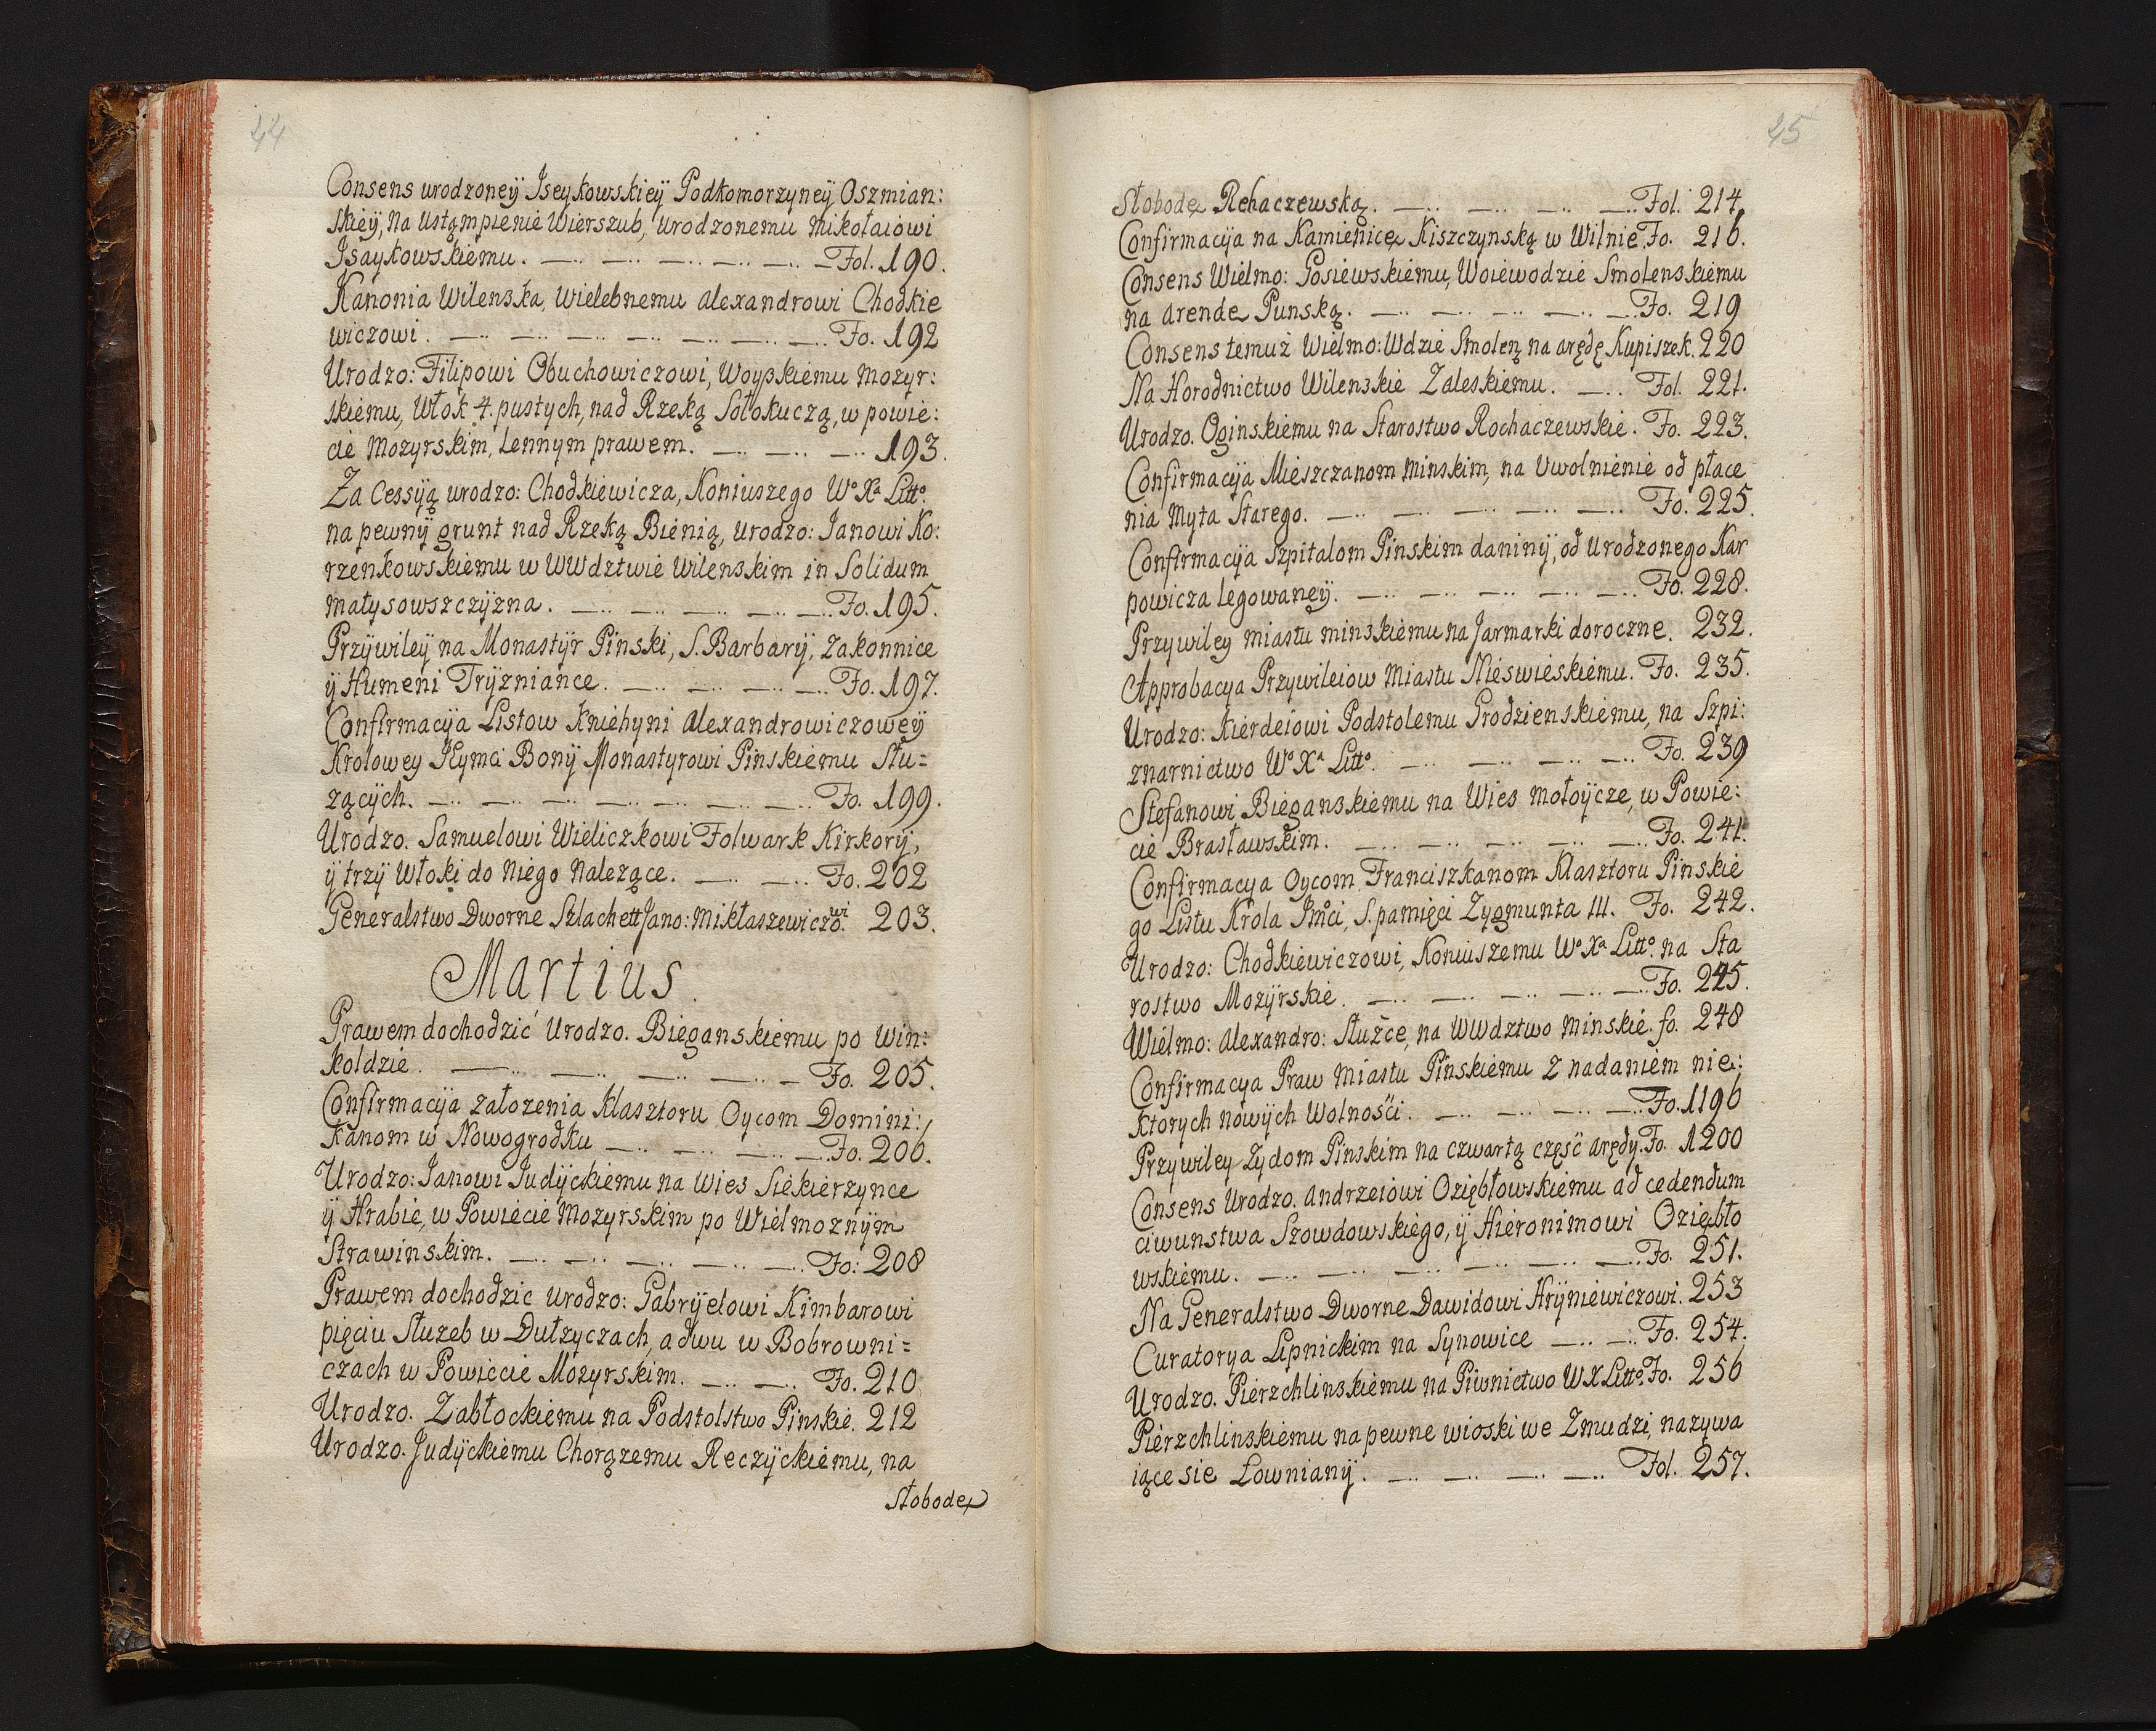 44
Consens urodzoneÿ Jseykowskieÿ Podkomorzyneÿ Oszmian:
skieÿ, na ustąmpienie Wierszub, urodzonemu Mikołaiowi
Jsaykowskiemu. — — — — — Fol. 190.
Kanonia Wilenska, Wielebnemu Alexandrowi Chodkie
wiczowi. — — — — — — — Fo. 192
Urodzo: Filipowi Obuchowiczowi, Woyskiemu Mozyr:
skiemu, Włok 4. pustych, nad Rzeką Sołokuczą, w powie:
cie Mozyrskim, Lennym prawem. — — — 193.
Za Cessÿą urodzo: Chodkiewicza, Koniuszego Wº Xª Littº.
na pewnÿ grunt nad Rzeką Bienią, urodzo: Janowi Ko:
rzenkowskiemu w WWdztwie Wilenskim in Solidum
Małysowszczÿzna. — — — — — Fo. 195.
Przÿwileÿ na Monastÿr Pinski, S. Barbarÿ, Zakonnice
ÿ Humeni Trÿzniance. — — — — Fo. 197.
Confirmacÿa Listow Kniehyni Alexandrowiczoweÿ
Krolowey Jeymci Bonÿ Monastyrowi Pinskiemu Słu=
zącÿch. — — — — — — — Fo. 199.
Urodzo. Samuelowi Wieliczkowi Folwark Kirkorÿ,
ÿ trzÿ Włoki do Niego Nalezące. — — Fo. 202
Generalstwo Dworne Szlachett Jano: Mikłaszewiczo.wi 203.
Martius.
Prawem dochodzić Urodzo. Bieganskiemu po Win:
koldzie. — — — — Fo. 205.
Confirmacÿa załozenia Klasztoru Oycom Domini:
kanom w Nowogrodku — — — — Fo. 206.
Urodzo: Janowi Judÿckiemu na Wies Siekierzynce
ÿ Hrabie, w Powiecie Mozyrskim po Wielmoznÿm
Strawinskim. — — — — — Fo: 208
Prawem dochodzic urodzo: Gabrÿelowi Kimbarowi
pięciu Słuzeb w Dutzyczach, a dwu w Bobrowni=
czach w Powiecie Mozyrskim. — — Fo. 210
Urodzo. Zabłockiemu na Podstolstwo Pinskie. 212
Urodzo. Judÿckiemu Chorązemu Reczÿckiemu, na
Słobodę
45
Słobodę Rehaczewską. — — — — Fol. 214.
Confirmacÿa na Kamienicę Kiszczynską w Wilnie. Fo. 216.
Consens Wielmo: Gosiewskiemu, Woiewodzie Smolenskiemu
na arendę Punską. — — — — — Fo. 219
Consens temuż Wielmo: Wdzie Smolen, na arędę Kupiszek. 220
Na Horodnictwo Wilenskie Zaleskiemu. — Fol. 221.
Urodzo. Oginskiemu na Starostwo Rochaczewskie. Fo. 223.
Confirmacÿa Mieszczanom Minskim, na Uwolnienie od płace
nia Myta Starego. — — — — — Fo. 225.
Confirmacÿa Szpitalom Pinskim daninÿ, od Urodzonego Kar
powicza legowaneÿ. — — — — — Fo. 228.
Przywiley miastu minskiemu na Jarmarki doroczne. 232.
Approbacya Przywileiow Miastu Nieswieskiemu. Fo. 235.
Urodzo: Kierdeiowi Podstolemu Grodzienskiemu, na Szpi:
znarnictwo Wº Xª Littº. — — — — Fo. 239
Stefanowi Bieganskiemu na Wies Mołoÿcze, w Powie:
cie Brasławskim. — — — — — Fo. 241.
Confirmacya Oycom Franciszkanom Klasztoru Pinskie
go Listu Krola Jmci, S. pamięci Zygmunta III. Fo. 242.
Urodzo: Chodkiewiczowi, Koniuszemu Wº Xª Littº. na Sta
rostwo Mozÿrskie. — — — — — Fo. 245.
Wielmo: Alexandro: Słuźce, na WWdztwo Minskie. fo. 248
Confirmacya Praw Miastu Pinskiemu z nadaniem nie:
ktorych nowÿch Wolnośći. — — — — Fo. 1196
Przywiley Zydom Pinskim na czwartą część arędy. Fo. 1200
Consens Urodzo. Andrzeiowi Oziębłowskiemu ad cedendum
ciwunstwa Szowdowskiego, ÿ Hieronimowi Oziębło
wskiemu. — — — — — — Fo. 251.
Na Generalstwo Dworne Dawidowi Hrÿniewiczowi. 253
Curatorya Lipnickim na Synowice — — Fo. 254.
Urodzo. Pierzchlinskiemu na Piwnictwo WX Littº. Fo. 256
Pierzchlinskiemu na pewne wioski we Zmudzi, nazywa
iące sie Łownianÿ. — — — — Fol. 257.